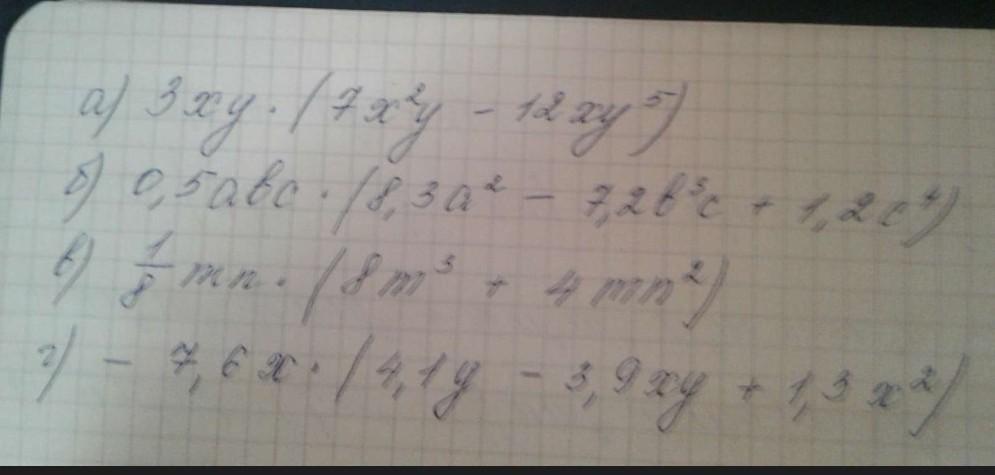 а) 3xy · (7x²y - 12xy⁵)
б) 0,5abc · (8,3a² - 7,2b³c + 1,2c⁴)
в) 1/8 mn · (8m³ + 4mn²)
г) - 7,6x · (4,1y - 3,9xy + 1,3x²)